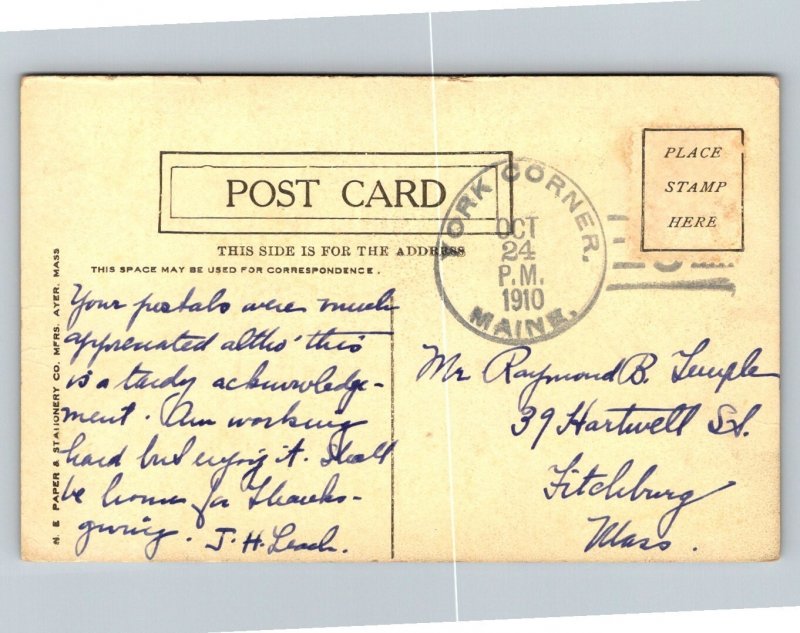 POST CARD
THIS SIDE IS FOR THE ADDRESS
THIS SPACE MAY BE USED FOR CORRESPONDENCE.
N. E. PAPER & STATIONERY CO. MFRS. AYER, MASS
YORK CORNER.
OCT
24
P.M.
1910
MAINE.
PLACE
STAMP
HERE
Your postals were much
appreciated altho' this
is a tardy acknowledge-
ment. Am working
hard but enjoy it. Shall
be home for Thanks-
giving. J. H. Leach.
Mr Raymond B. Temple
39 Hartwell St.
Fitchburg
Mass.